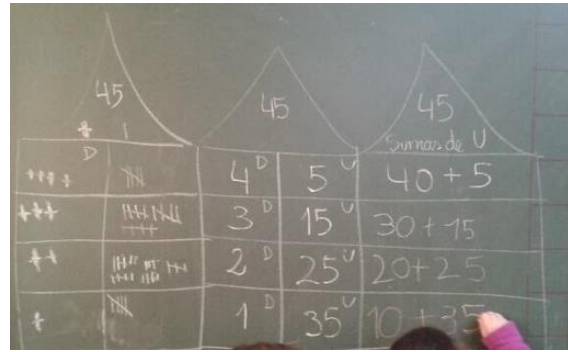 45 45 45
Sumas de U
D
4 D 5 U 40+5
3 D 15 U 30+15
2 D 25 U 20+25
1 D 35 U 10+35